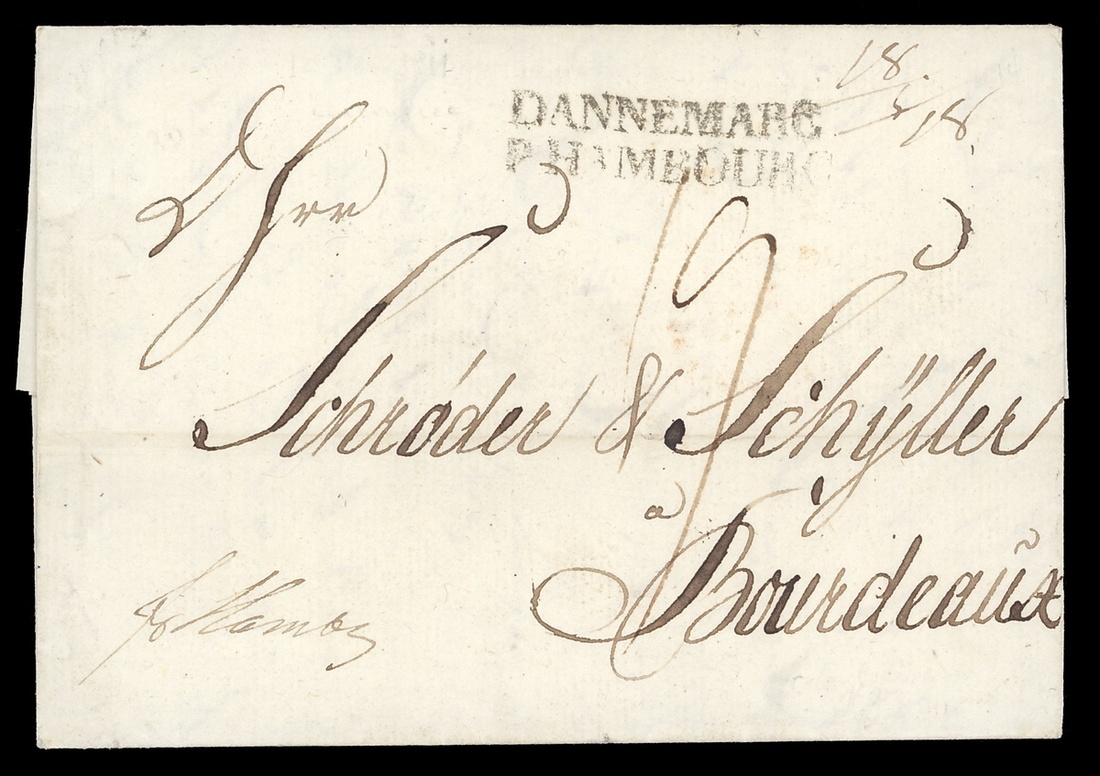 DANNEMARC
P. HAMBOURG
D Herr
Schröder & Schÿller
a
Bourdeaux
fr Hambg